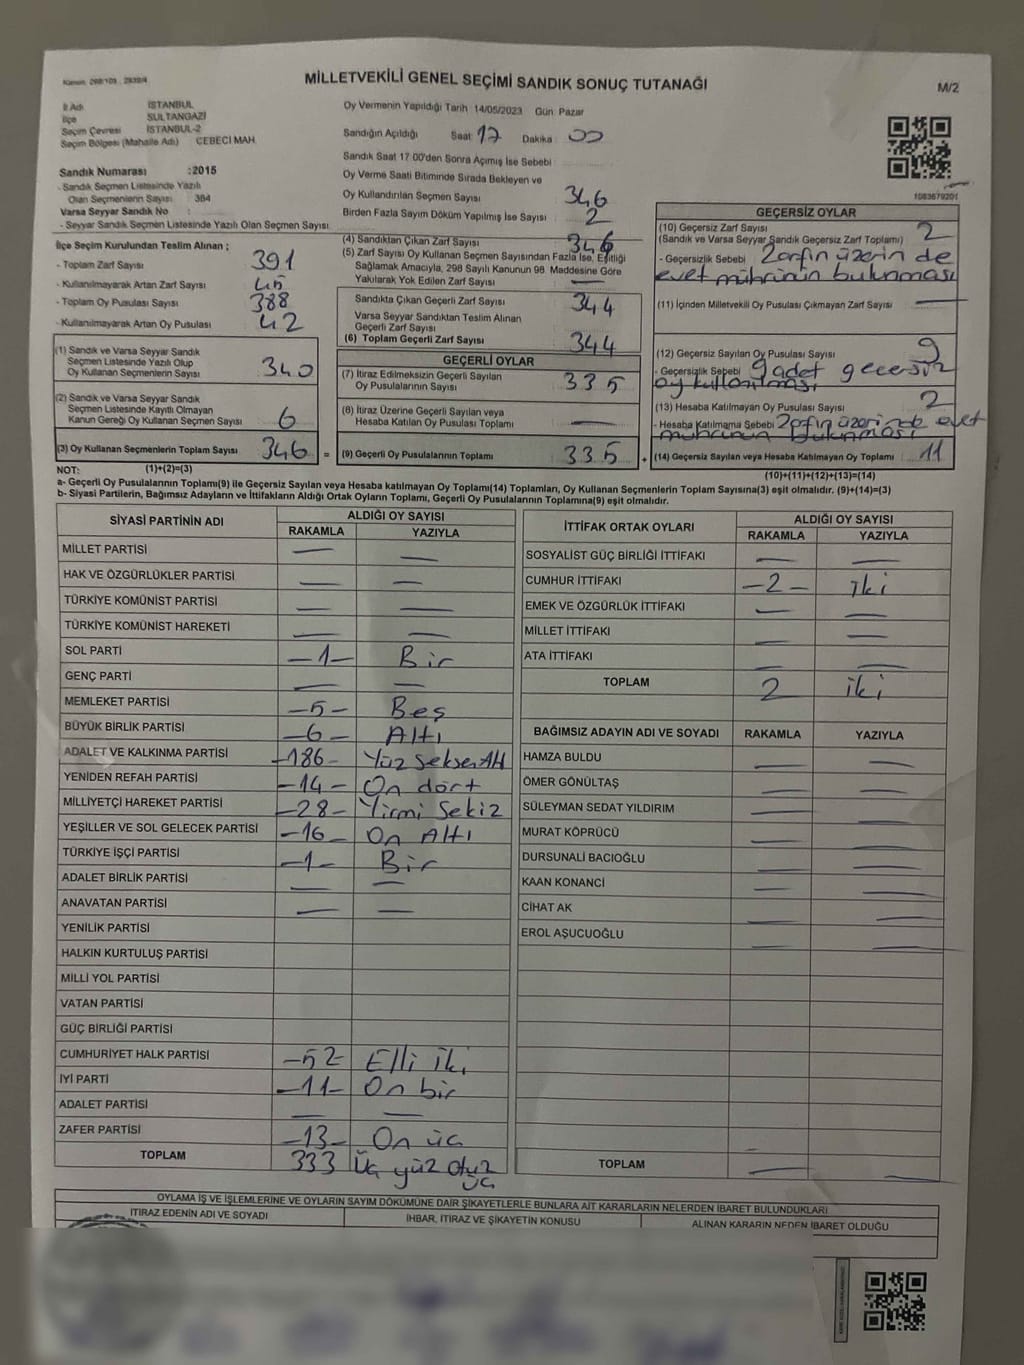 Kanun: 298/103 , 2839/4
MİLLETVEKİLİ GENEL SEÇİMİ SANDIK SONUÇ TUTANAĞI
M/2
İl Adı İSTANBUL
İlçe SULTANGAZİ
Seçim Çevresi İSTANBUL-2
Seçim Bölgesi (Mahalle Adı) CEBECİ MAH
Sandık Numarası :2015
- Sandık Seçmen Listesinde Yazılı
Olan Seçmenlerin Sayısı : 384
Varsa Seyyar Sandık No :
- Seyyar Sandık Seçmen Listesinde Yazılı Olan Seçmen Sayısı
Oy Vermenin Yapıldığı Tarih 14/05/2023 Gün: Pazar
Sandığın Açıldığı Saat: 17 Dakika : 00
Sandık Saat 17:00'den Sonra Açımış İse Sebebi :
Oy Verme Saati Bitiminde Sırada Bekleyen ve
Oy Kullandırılan Seçmen Sayısı : 346
Birden Fazla Sayım Döküm Yapılmış İse Sayısı : 2
1083679201
İlçe Seçim Kurulundan Teslim Alınan ;
- Toplam Zarf Sayısı : 391
- Kullanılmayarak Artan Zarf Sayısı : 45
- Toplam Oy Pusulası Sayısı : 388
- Kullanılmayarak Artan Oy Pusulası : 42
(1) Sandık ve Varsa Seyyar Sandık
Seçmen Listesinde Yazılı Olup
Oy Kullanan Seçmenlerin Sayısı : 340
(2) Sandık ve Varsa Seyyar Sandık
Seçmen Listesinde Kayıtlı Olmayan
Kanun Gereği Oy Kullanan Seçmen Sayısı : 6
(3) Oy Kullanan Seçmenlerin Toplam Sayısı : 346 =
(4) Sandıktan Çıkan Zarf Sayısı : 346
(5) Zarf Sayısı Oy Kullanan Seçmen Sayısından Fazla İse, Eşitliği
Sağlamak Amacıyla, 298 Sayılı Kanunun 98. Maddesine Göre
Yakılarak Yok Edilen Zarf Sayısı : —
Sandıkta Çıkan Geçerli Zarf Sayısı : 344
Varsa Seyyar Sandıktan Teslim Alınan
Geçerli Zarf Sayısı :
(6) Toplam Geçerli Zarf Sayısı : 344
GEÇERLİ OYLAR
(7) İtiraz Edilmeksizin Geçerli Sayılan
Oy Pusulalarının Sayısı : 335
(8) İtiraz Üzerine Geçerli Sayılan veya
Hesaba Katılan Oy Pusulası Toplamı : —
(9) Geçerli Oy Pusulalarının Toplamı : 335 +
GEÇERSİZ OYLAR
(10) Geçersiz Zarf Sayısı
(Sandık ve Varsa Seyyar Sandık Geçersiz Zarf Toplamı) : 2
- Geçersizlik Sebebi : Zarfın üzerin de
evet mührünün bulunması
(11) İçinden Milletvekili Oy Pusulası Çıkmayan Zarf Sayısı : —
(12) Geçersiz Sayılan Oy Pusulası Sayısı : 9
- Geçersizlik Sebebi : 9 adet geçersiz
oy kullanılması
(13) Hesaba Katılmayan Oy Pusulası Sayısı : 2
- Hesaba Katılmama Sebebi : Zarfın üzerinde evet
mührünün bulunması
(14) Geçersiz Sayılan veya Hesaba Katılmayan Oy Toplamı : 11
NOT: (1)+(2)=(3) (10)+(11)+(12)+(13)=(14)
a- Geçerli Oy Pusulalarının Toplamı(9) ile Geçersiz Sayılan veya Hesaba katılmayan Oy Toplamı(14) Toplamları, Oy Kullanan Seçmenlerin Toplam Sayısına(3) eşit olmalıdır. (9)+(14)=(3)
b- Siyasi Partilerin, Bağımsız Adayların ve İttifakların Aldığı Ortak Oyların Toplamı, Geçerli Oy Pusulalarının Toplamına(9) eşit olmalıdır.
SİYASİ PARTİNİN ADI ALDIĞI OY SAYISI
RAKAMLA YAZIYLA
MİLLET PARTİSİ — —
HAK VE ÖZGÜRLÜKLER PARTİSİ — —
TÜRKİYE KOMÜNİST PARTİSİ — —
TÜRKİYE KOMÜNİST HAREKETİ — —
SOL PARTİ -1- Bir
GENÇ PARTİ — —
MEMLEKET PARTİSİ -5- Beş
BÜYÜK BİRLİK PARTİSİ -6- Altı
ADALET VE KALKINMA PARTİSİ -186- Yüz Seksen Altı
YENİDEN REFAH PARTİSİ -14- On dört
MİLLİYETÇİ HAREKET PARTİSİ -28- Yirmi Sekiz
YEŞİLLER VE SOL GELECEK PARTİSİ -16- On Altı
TÜRKİYE İŞÇİ PARTİSİ -1- Bir
ADALET BİRLİK PARTİSİ — —
ANAVATAN PARTİSİ — —
YENİLİK PARTİSİ
HALKIN KURTULUŞ PARTİSİ
MİLLİ YOL PARTİSİ
VATAN PARTİSİ
GÜÇ BİRLİĞİ PARTİSİ
CUMHURİYET HALK PARTİSİ -52- Elli iki
İYİ PARTİ -11- On bir
ADALET PARTİSİ — —
ZAFER PARTİSİ -13- On üç
TOPLAM 333 Üç yüz otuz
üç
İTTİFAK ORTAK OYLARI ALDIĞI OY SAYISI
RAKAMLA YAZIYLA
SOSYALİST GÜÇ BİRLİĞİ İTTİFAKI — —
CUMHUR İTTİFAKI -2- iki
EMEK VE ÖZGÜRLÜK İTTİFAKI — —
MİLLET İTTİFAKI — —
ATA İTTİFAKI — —
TOPLAM 2 iki
BAĞIMSIZ ADAYIN ADI VE SOYADI RAKAMLA YAZIYLA
HAMZA BULDU — —
ÖMER GÖNÜLTAŞ — —
SÜLEYMAN SEDAT YILDIRIM — —
MURAT KÖPRÜCÜ — —
DURSUNALİ BACIOĞLU — —
KAAN KONANCİ — —
CİHAT AK — —
EROL AŞUCUOĞLU — —
TOPLAM — —
OYLAMA İŞ VE İŞLEMLERİNE VE OYLARIN SAYIM DÖKÜMÜNE DAİR ŞİKAYETLERLE BUNLARA AİT KARARLARIN NELERDEN İBARET BULUNDUKLARI
İTİRAZ EDENİN ADI VE SOYADI İHBAR, İTİRAZ VE ŞİKAYETİN KONUSU ALINAN KARARIN NEDEN İBARET OLDUĞU